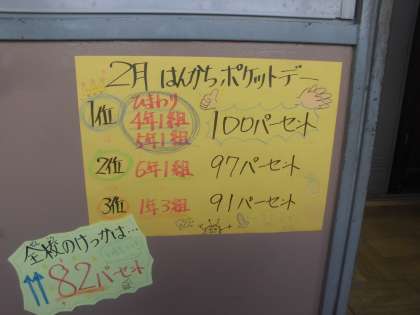 2月 はんかちポケットデー
1位 ひまわり
4年1組
5年1組
100パーセント
2位 6年1組 97パーセント
3位 1年3組 91パーセント
全校のけっかは…
82パーセント